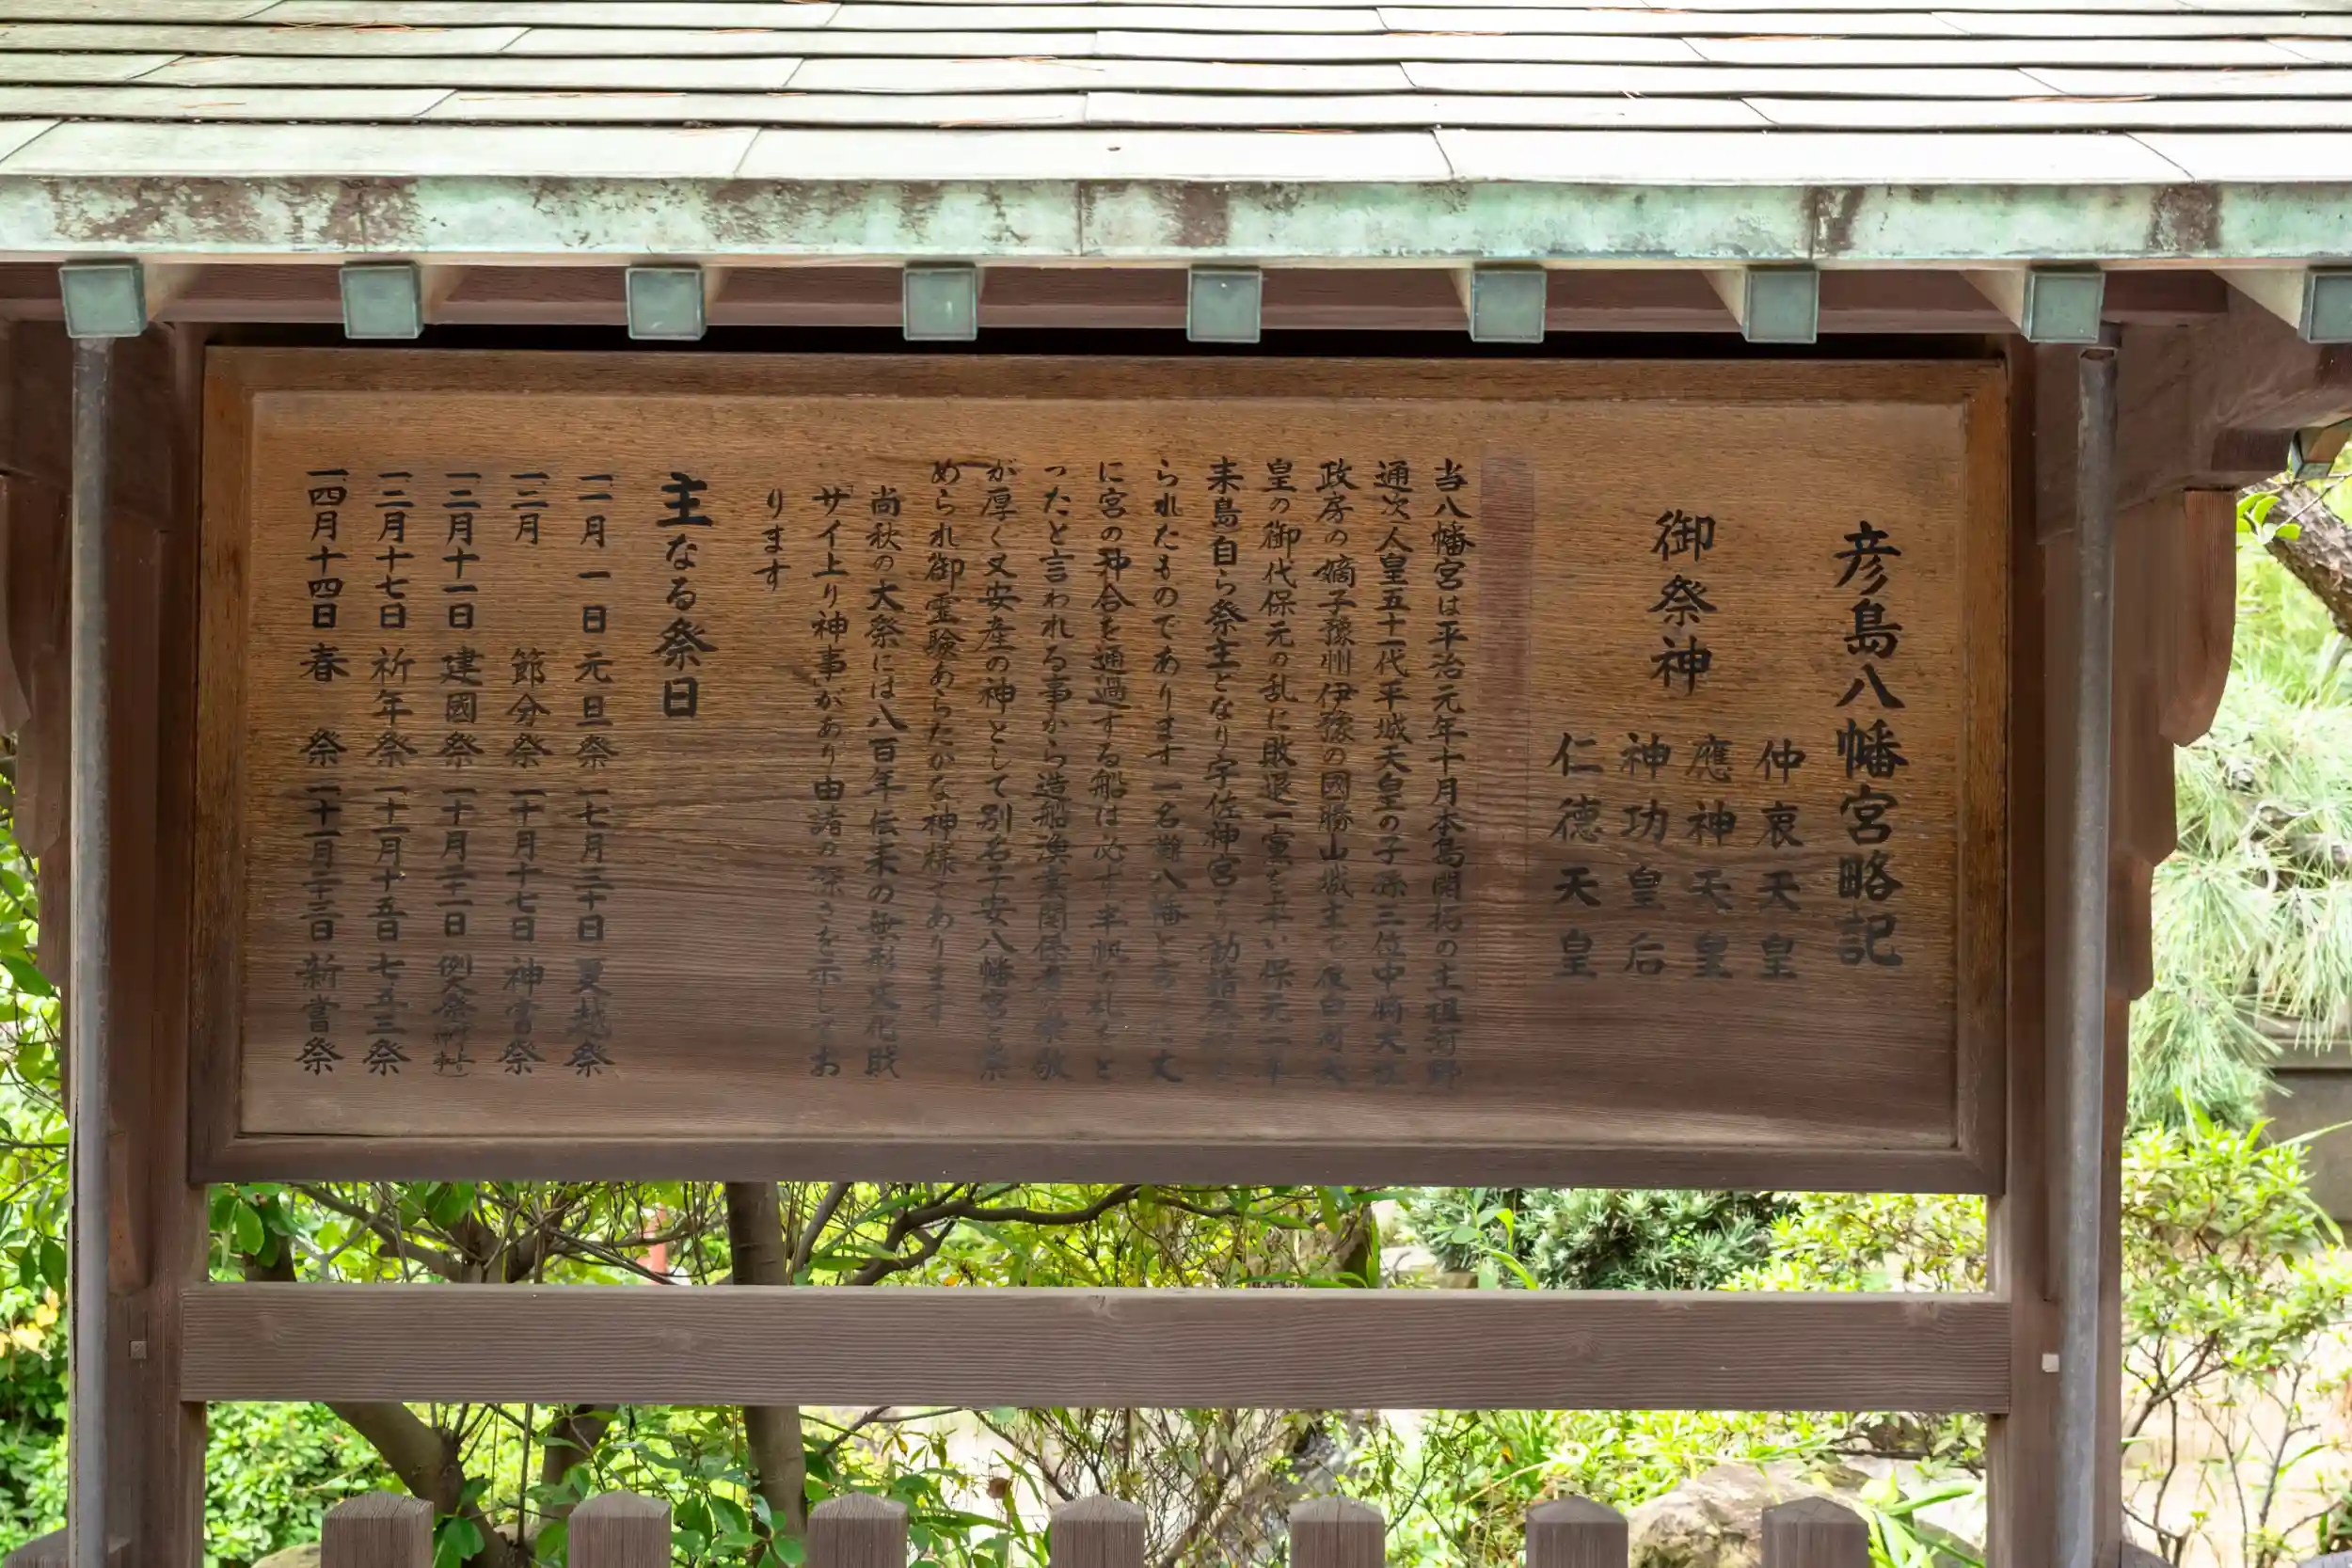 彦島八幡宮略記
御祭神
仲哀天皇
應神天皇
神功皇后
仁德天皇
当八幡宮は平治元年十月本島開拓の主祖河野
通次人皇五十一代平城天皇の子孫三位中将大
政房の嫡子豫州伊豫の國勝山城主で後白河天
皇の御代保元の乱に敗退一黨を率い保元二年
来島自ら祭主となり宇佐神宮より勧請
られたものであります一名灘八幡と言
に宮の沖合を通過する船は必ず半帆の礼をと
ったと言われる事から造船漁業関係者の崇敬
が厚く又安産の神として別名子安八幡宮と崇
められ御霊験あらたかな神様であります
尚秋の大祭には八百年伝来の無形文化財
サイ上り神事があり由諸の深さを示してお
ります
主なる祭日
一一月一日元旦祭一七月三十日夏越祭
一二月　節分祭一十月十七日神嘗祭
一二月十一日建國祭一十月二十一日例大祭
一二月十七日祈年祭一十一月十五日七五三祭
一四月十四日春　祭一十一月二十三日新嘗祭